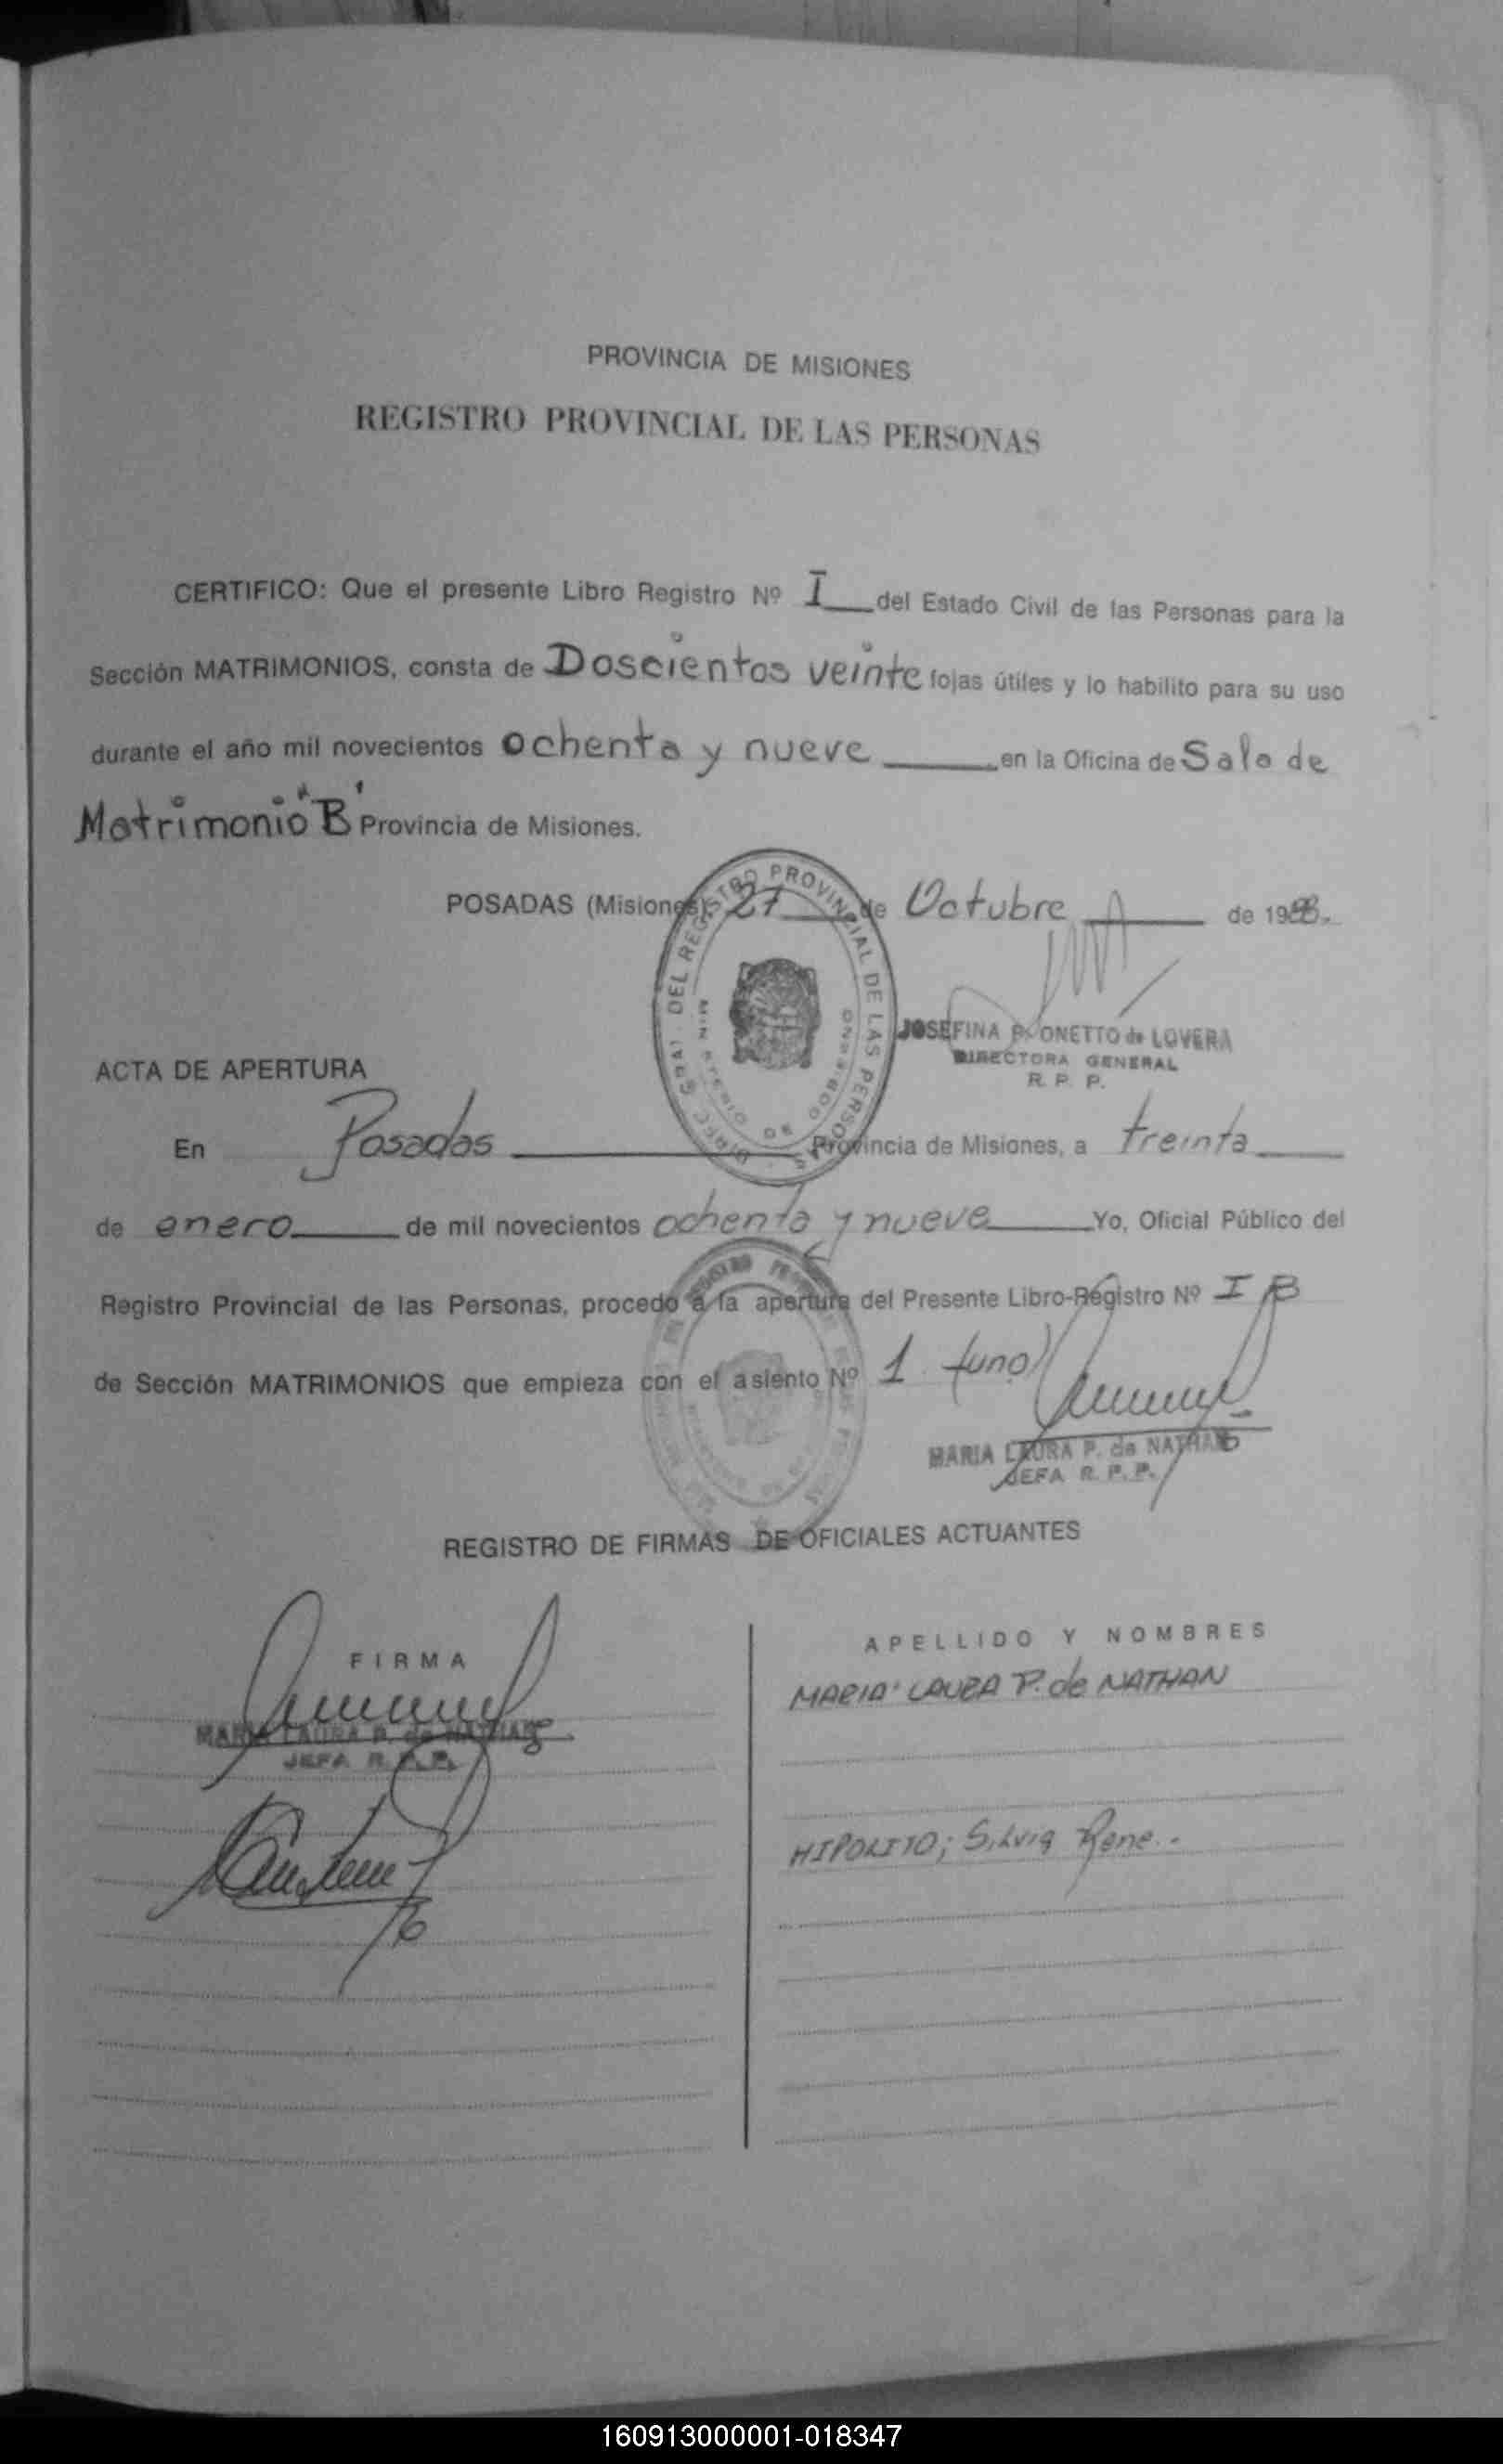 PROVINCIA DE MISIONES
REGISTRO PROVINCIAL DE LAS PERSONAS
CERTIFICO: Que el presente Libro Registro Nº I del Estado Civil de las Personas para la
Sección MATRIMONIOS, consta de Doscientos veinte fojas útiles y lo habilito para su uso
durante el año mil novecientos ochenta y nueve en la Oficina de Sala de
Matrimonio "B" Provincia de Misiones.
POSADAS (Misiones), 27 de Octubre de 1988.
DIREC. GRAL. DEL REGISTRO PROVINCIAL DE LAS PERSONAS
MINISTERIO DE GOBIERNO
JOSEFINA P. ONETTO de LOVERA
DIRECTORA GENERAL
R. P. P.
ACTA DE APERTURA
En Posadas Provincia de Misiones, a treinta
de enero de mil novecientos ochenta y nueve Yo, Oficial Público del
Registro Provincial de las Personas, procedo a la apertura del Presente Libro-Registro Nº I B
de Sección MATRIMONIOS que empieza con el asiento Nº 1 (uno)
MARIA LAURA P. de NATHAN
JEFA R. P. P.
REGISTRO DE FIRMAS DE OFICIALES ACTUANTES
FIRMA
APELLIDO Y NOMBRES
MARIA LAURA P. de NATHAN
MARIA LAURA P. de NATHAN
JEFA R. P. P.
HIPOLITO; Silvia Rene.-
160913000001-018347